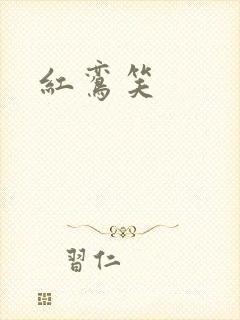 紅鸞笑
習仁